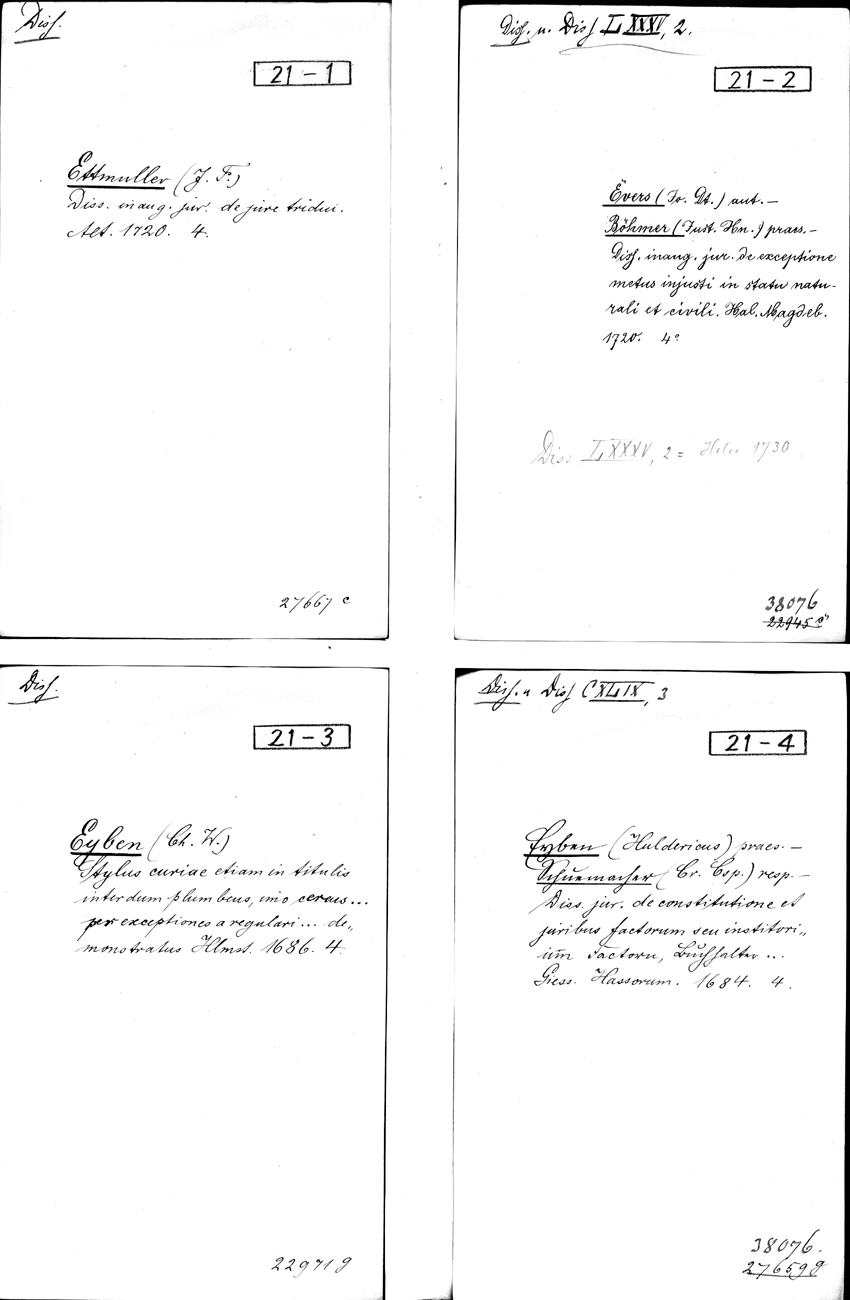 Diss.
21-1
Ettmuller (J. F.)
Diss. inaug. jur. de jure tridui.
Alt. 1720. 4.
27667 c
Diss. u. Diss LXXXV, 2.
21-2
Evers (Io. Dt.) aut. —
Böhmer (Iust. Hn.) praes. —
Diss. inaug. jur. de exceptione
metus injusti in statu natu-
rali et civili. Hal. Magdeb.
1720. 4°
Diss LXXXV, 2 = 1730
38076
22945 c
Diss.
21-3
Eyben (Ch. W.)
Stylus curiae etiam in titulis
interdum plumbeus, imo cereus...
per exceptiones a regulari... de„
monstratus Hlmst. 1686. 4.
22971 g
Diss. u Diss CXLIX, 3
21-4
Eyben (Huldericus) praes. —
Schuemacher (Cr. Csp.) resp. —
Diss. jur. de constitutione et
juribus factorum seu institori„
um Factorn, Buchhalter...
Giess. Hassorum. 1684. 4.
38076.
27659 g